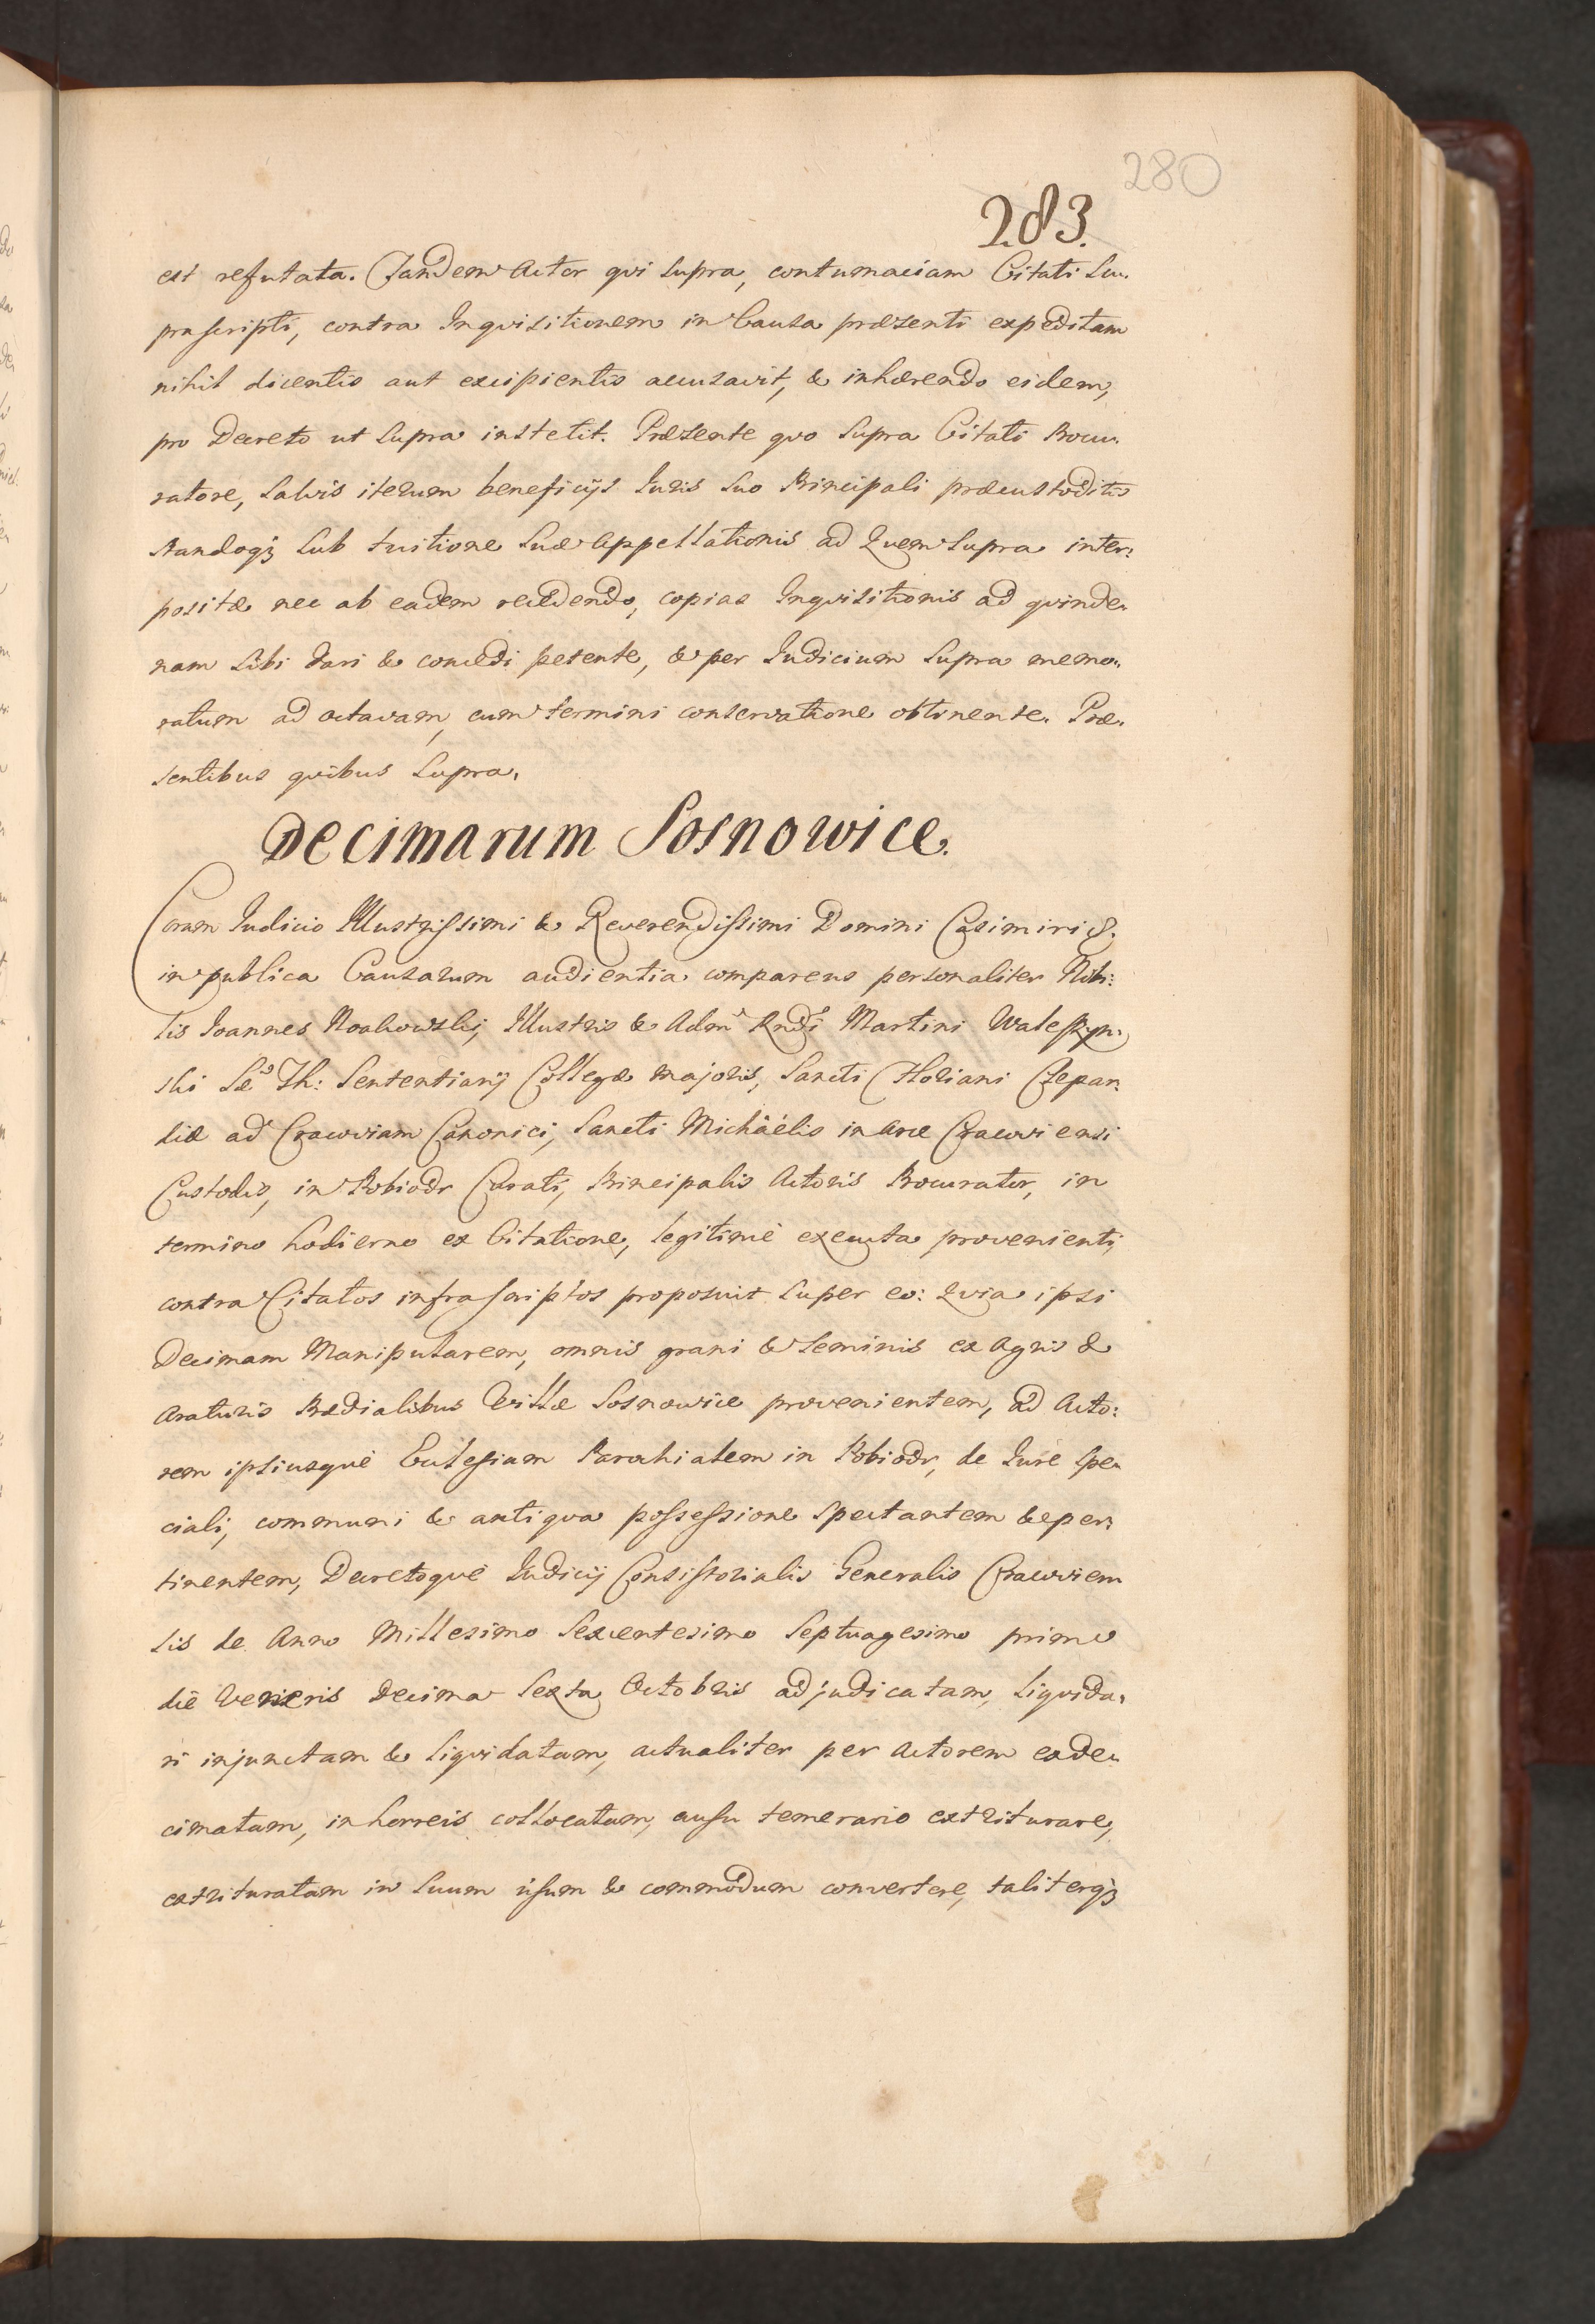 280
283.
est refutata. Tandem Actor qui supra, contumaciam Citati Su-
prascripti, contra Inqvisitionem in Causa præsenti expeditam
nihil dicentis aut excipientis accusavit, & inhærendo eidem,
pro Decreto ut supra institit. Præsente qvo supra Citati Procu-
ratore, salvis iterum beneficijs Juris suo Principali præcustoditis
standoq3 sub tuitione suæ Appellationis ad Qvem supra inter:
positæ nec ab eadem recedendo, copias Inqvisitionis ad qvinde-
nam sibi dari & concedi petente, & per Iudicium supra memo-
ratum ad octavam, cum termini conservatione obtinente. Præ-
sentibus qvibus supra.
Decimarum Sosnowice.
Coram Iudicio Illustrissimi & Reverendissimi Domini Casimiri &.
in publica Causarum audientia comparens personaliter Nobi:
lis Joannes Noakowskj, Illustris & Admᵈ Rndi Martini Waleszyn-
ski Sæ Th: Sententiarij Collegæ Majoris, Sancti Floriani Clepar-
diæ ad Cracoviam Canonici, Sancti Michäelis in Arce Cracoviensi
Custodis, in Pobiedr Curati, Principalis Actoris Procurator, in
termino hodierno ex Citatione, legitime executa provenienti,
contra Citatos infrascriptos proposuit super eo: Qvia ipsi
Decimam Manipularem, omnis grani & seminis ex Agris &
Araturis Prædialibus Villæ Sosnowice provenientem, ad Acto:
rem ipsiusqve Ecclesiam Parochialem in Pobiedr, de Jure spe-
ciali, communi & antiqva possessione spectantem & per:
tinentem, Decretoqve Iudicij Consistorialis Generalis Cracovien
sis de Anno Millesimo Sexcentesimo Septuagesimo primo
die Veneris Decima Sexta Octobris adjudicatam, liqvida-
ri injunctam & liqvidatam, actualiter per Actorem exde-
cimatam, in horreis collocatam, ausu temerario extriturare,
extrituratam in suum usum & commodum convertere, taliterq3